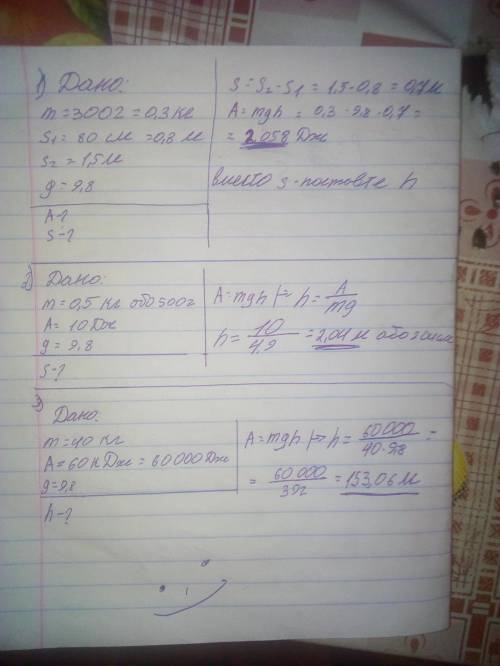 1) Дано:
m = 300г = 0,3 кг
S₁ = 80 см = 0,8 м
S₂ = 1,5 м
g = 9,8
A - ?
S - ?
S = S₂ - S₁ = 1,5 - 0,8 = 0,7 м
A = mgh = 0,3 · 9,8 · 0,7 =
= 2,058 Дж
вместо s - поставте h
2) Дано:
m = 0,5 кг або 500г
A = 10 Дж
g = 9,8
S - ?
A = mgh |=> h = A/mg
h = 10/4,9 = 2,04 м або
3) Дано:
m = 40 кг
A = 60 кДж = 60000 Дж
g = 9,8
h - ?
A = mgh |=> h = 60000/40·9,8 =
= 60000/392 = 153,06 м